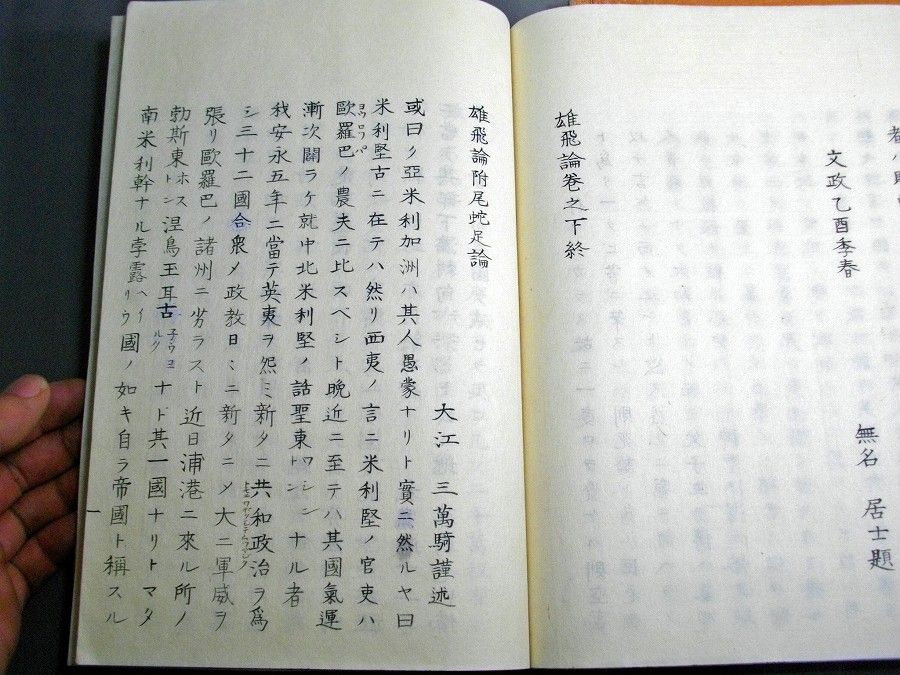 文政乙酉季春
無名居士題
雄飛論卷之下終
雄飛論附尾蛇足論
大江三萬騎謹述
或曰ク亞米利加洲ハ其人愚蒙ナリト實ニ然ルヤ曰
米利堅古ニ在テハ然リ西夷ノ言ニ米利堅ノ官吏ハ
歐羅巴ノ農夫ニ比スベシト晩近ニ至テハ其國氣運
ヨウロツパ
漸次闢ラケ就中北米利堅ノ話聖東ワシントンナル者
我安永五年ニ當テ英夷ヲ怨ミ新タニ共和政治ヲ爲
シ三十二國合衆メ政教日ニ新タニメ大ニ軍威ヲ
張リ歐羅巴ノ諸州ニ劣ラスト近日浦港ニ來ル所ノ
勃斯東ホストン涅烏玉耳古ナド其一國ナリトマタ
南米利幹ナル孛露ヘイリウ國ノ如キ自ラ帝國ト稱スル